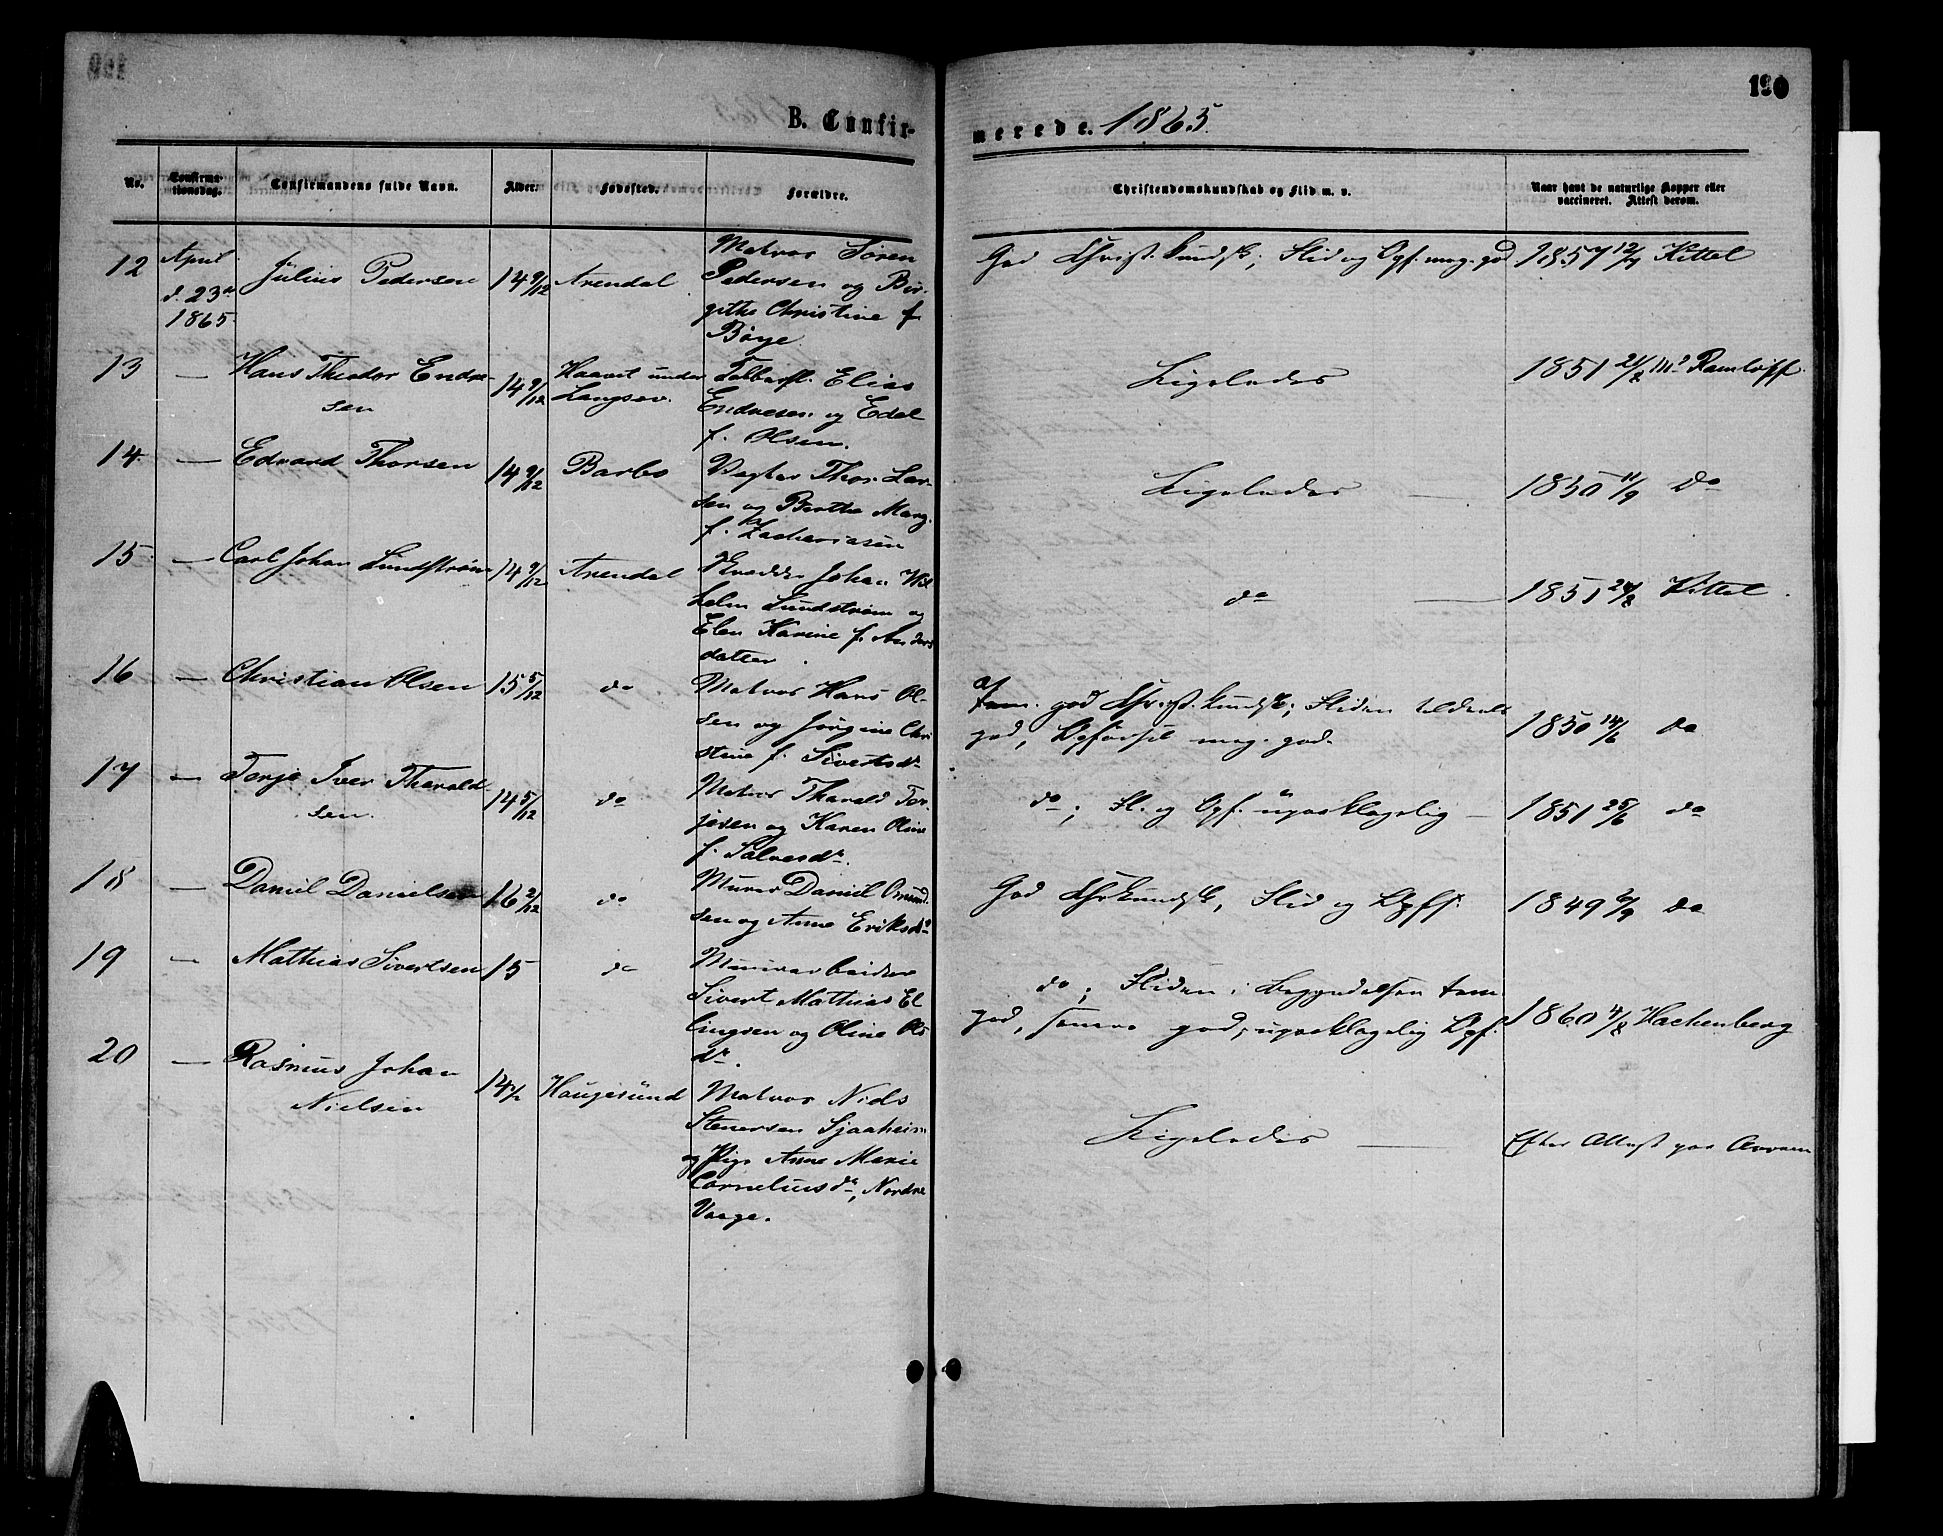 190
B. Confir-
merede. 1865.
Nr.
Confirma-
tionsdag.
Confirmandens fulde Navn.
Alder.
Fødested.
Forældre.
Christendomskundskab og Flid m. v.
Naar havt de naturlige Kopper eller
vaccineret. Attest derom.
12 April Julius Pedersen 14 9/12 Arendal Matros Søren
d. 23de Pedersen og Bir-
1865. githe Christine f.
Bøye.
God Christ. kundsk; Flid og Opf. meg. god 1857 12/9 Kittel
13 — Hans Theodor Endre- 14 9/12 Haavet under Elias
sen Langsev. Endresen og Edel
f. Olsen.
Ligeledes 1851 21/8 Ramløff
14 — Edvard Thorsen 14 9/12 Barbo Vegter Thor Lar-
sen og Berthe Marg.
f. Zachariasen
Ligeledes — 1850 11/9 do
15 — Carl Johan Lundstrøm 14 9/12 Arendal Johan Wil
helm Lundstrøm og
Elen Karine f. Anders
datter.
do — 1851 24/8 Kittel
16 — Christian Olsen 15 5/12 do Matros Hans Ol-
sen og Jørgine Chri
stine f. Sivertsdr
tem. god Christ. kundsk; Fliden
god, Opførsel meg. god. 1850 14/6 do
17 — Terje Iver Tharald- 14 5/12 do Matros Tharald Ter-
sen. jesen og Karen Oline
f. Salvesdr.
do; Fl. og Opf. upaaklagelig — 1851 25/6 do
18 — Daniel Danielsen 16 2/12 do Murer Daniel Osmund
sen og Anne Eriksdr
God Chr kundsk, Flid og Opf. 1849 do
19 — Mathias Sivertsen 15 do Murerarbeider
Sivert Mathias El
lingsen og Oline Ols
dr.
do; Fliden i Begyndelsen tem.
god, senere god, upaaklagelig Opf. 1860 4/8 Hachenberg
20 — Rasmus Johan 14 1/2 Haugesund Matros Niels
Nielsen Stenersen Sjaaheim
og Pige Anne Marie
Corneliusdr, Nordre
Vaage.
Ligeledes — Efter Attest paa Armen